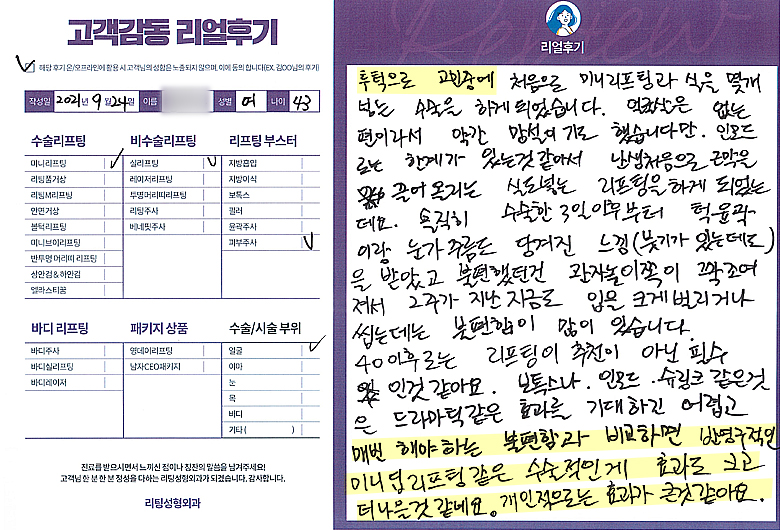 고객감동 리얼후기
해당 후기 온/오프라인에 활용 시 고객님의 성함은 노출되지 않으며, 이에 동의 합니다(EX. 김OO님의 후기)
작성일 2021년 9월 24일 이름 성별 여 나이 43
수술리프팅
미니리프팅
리팅풀거상
리팅M리프팅
안면거상
볼턱리프팅
미니브이리프팅
반투명 머리띠 리프팅
상안검 & 하안검
엘라스티꿈
비수술리프팅
실리프팅
레이저리프팅
투명머리띠리프팅
리팅주사
베네핏주사
리프팅 부스터
지방흡입
지방이식
보톡스
필러
윤곽주사
피부주사
바디 리프팅
바디주사
바디실리프팅
바디레이저
패키지 상품
영데이리프팅
남자CEO패키지
수술/시술 부위
얼굴
이마
눈
목
바디
기타 ( )
진료를 받으시면서 느끼신 점이나 칭찬의 말씀을 남겨주세요!
고객님 한 분 한 분 정성을 다하는 리팅성형외과가 되겠습니다. 감사합니다.
리팅성형외과
리얼후기
투턱으로 고민중에 처음으로 미니리프팅과 실을 몇개
넣는 수술을 하게 되었습니다. 얼굴살은 없는
편이라서 약간 망설이기도 했습니다만. 인모드
로는 한계가 있는것 같아서 난생처음으로 근막을
끌어 올리는 실도넣는 리프팅을 하게 되었는
데요. 솔직히 수술한 3일이후부터 턱윤곽
이랑 눈가 주름도 당겨진 느낌(붓기가 있는데도)
을 받았고 불편했던건 관자놀이쪽이 꽉조여
져서 2주가 지난 지금도 입을 크게 벌리거나
씹는데는 불편함이 많이 있습니다.
40이후로는 리프팅이 추천이 아닌 필수
인것 같아요. 보톡스나. 인모드. 슈링크 같은것
은 드라마틱같은 효과를 기대하긴 어렵고
매번 해야하는 불편함과 비교하면 반영구적인
미니딥리프팅 같은 수술적인게 효과도 크고
더나을것 같네요. 개인적으로는 효과가 큰것 같아요.